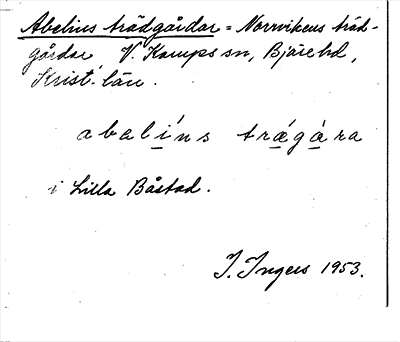 Abelins trädgårdar = Norrvikens träd-
gårdar, V. Karups sn, Bjäre hd,
Krist. län.
abelíns trǽgàra
i Lilla Båstad.
I. Ingers 1953.